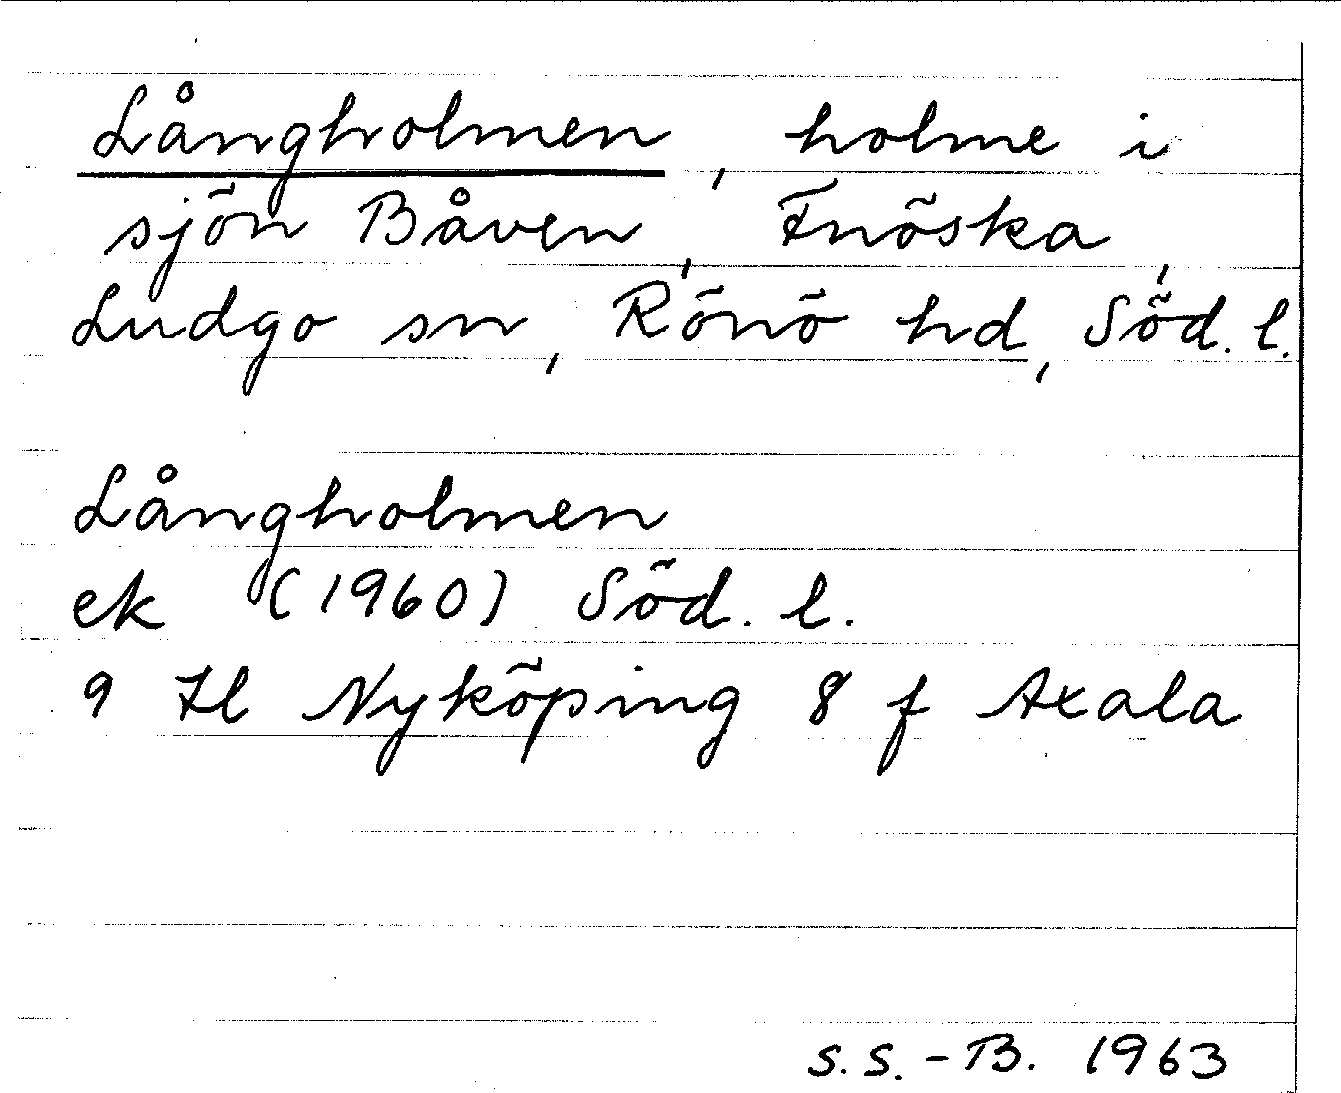 Långholmen, holme i
sjön Båven, Fnöska,
Ludgo sn, Rönö hd, Söd. l.
Långholmen
ek (1960) Söd. l.
9 Hl Nyköping 8 f Axala
S.S.-B. 1963